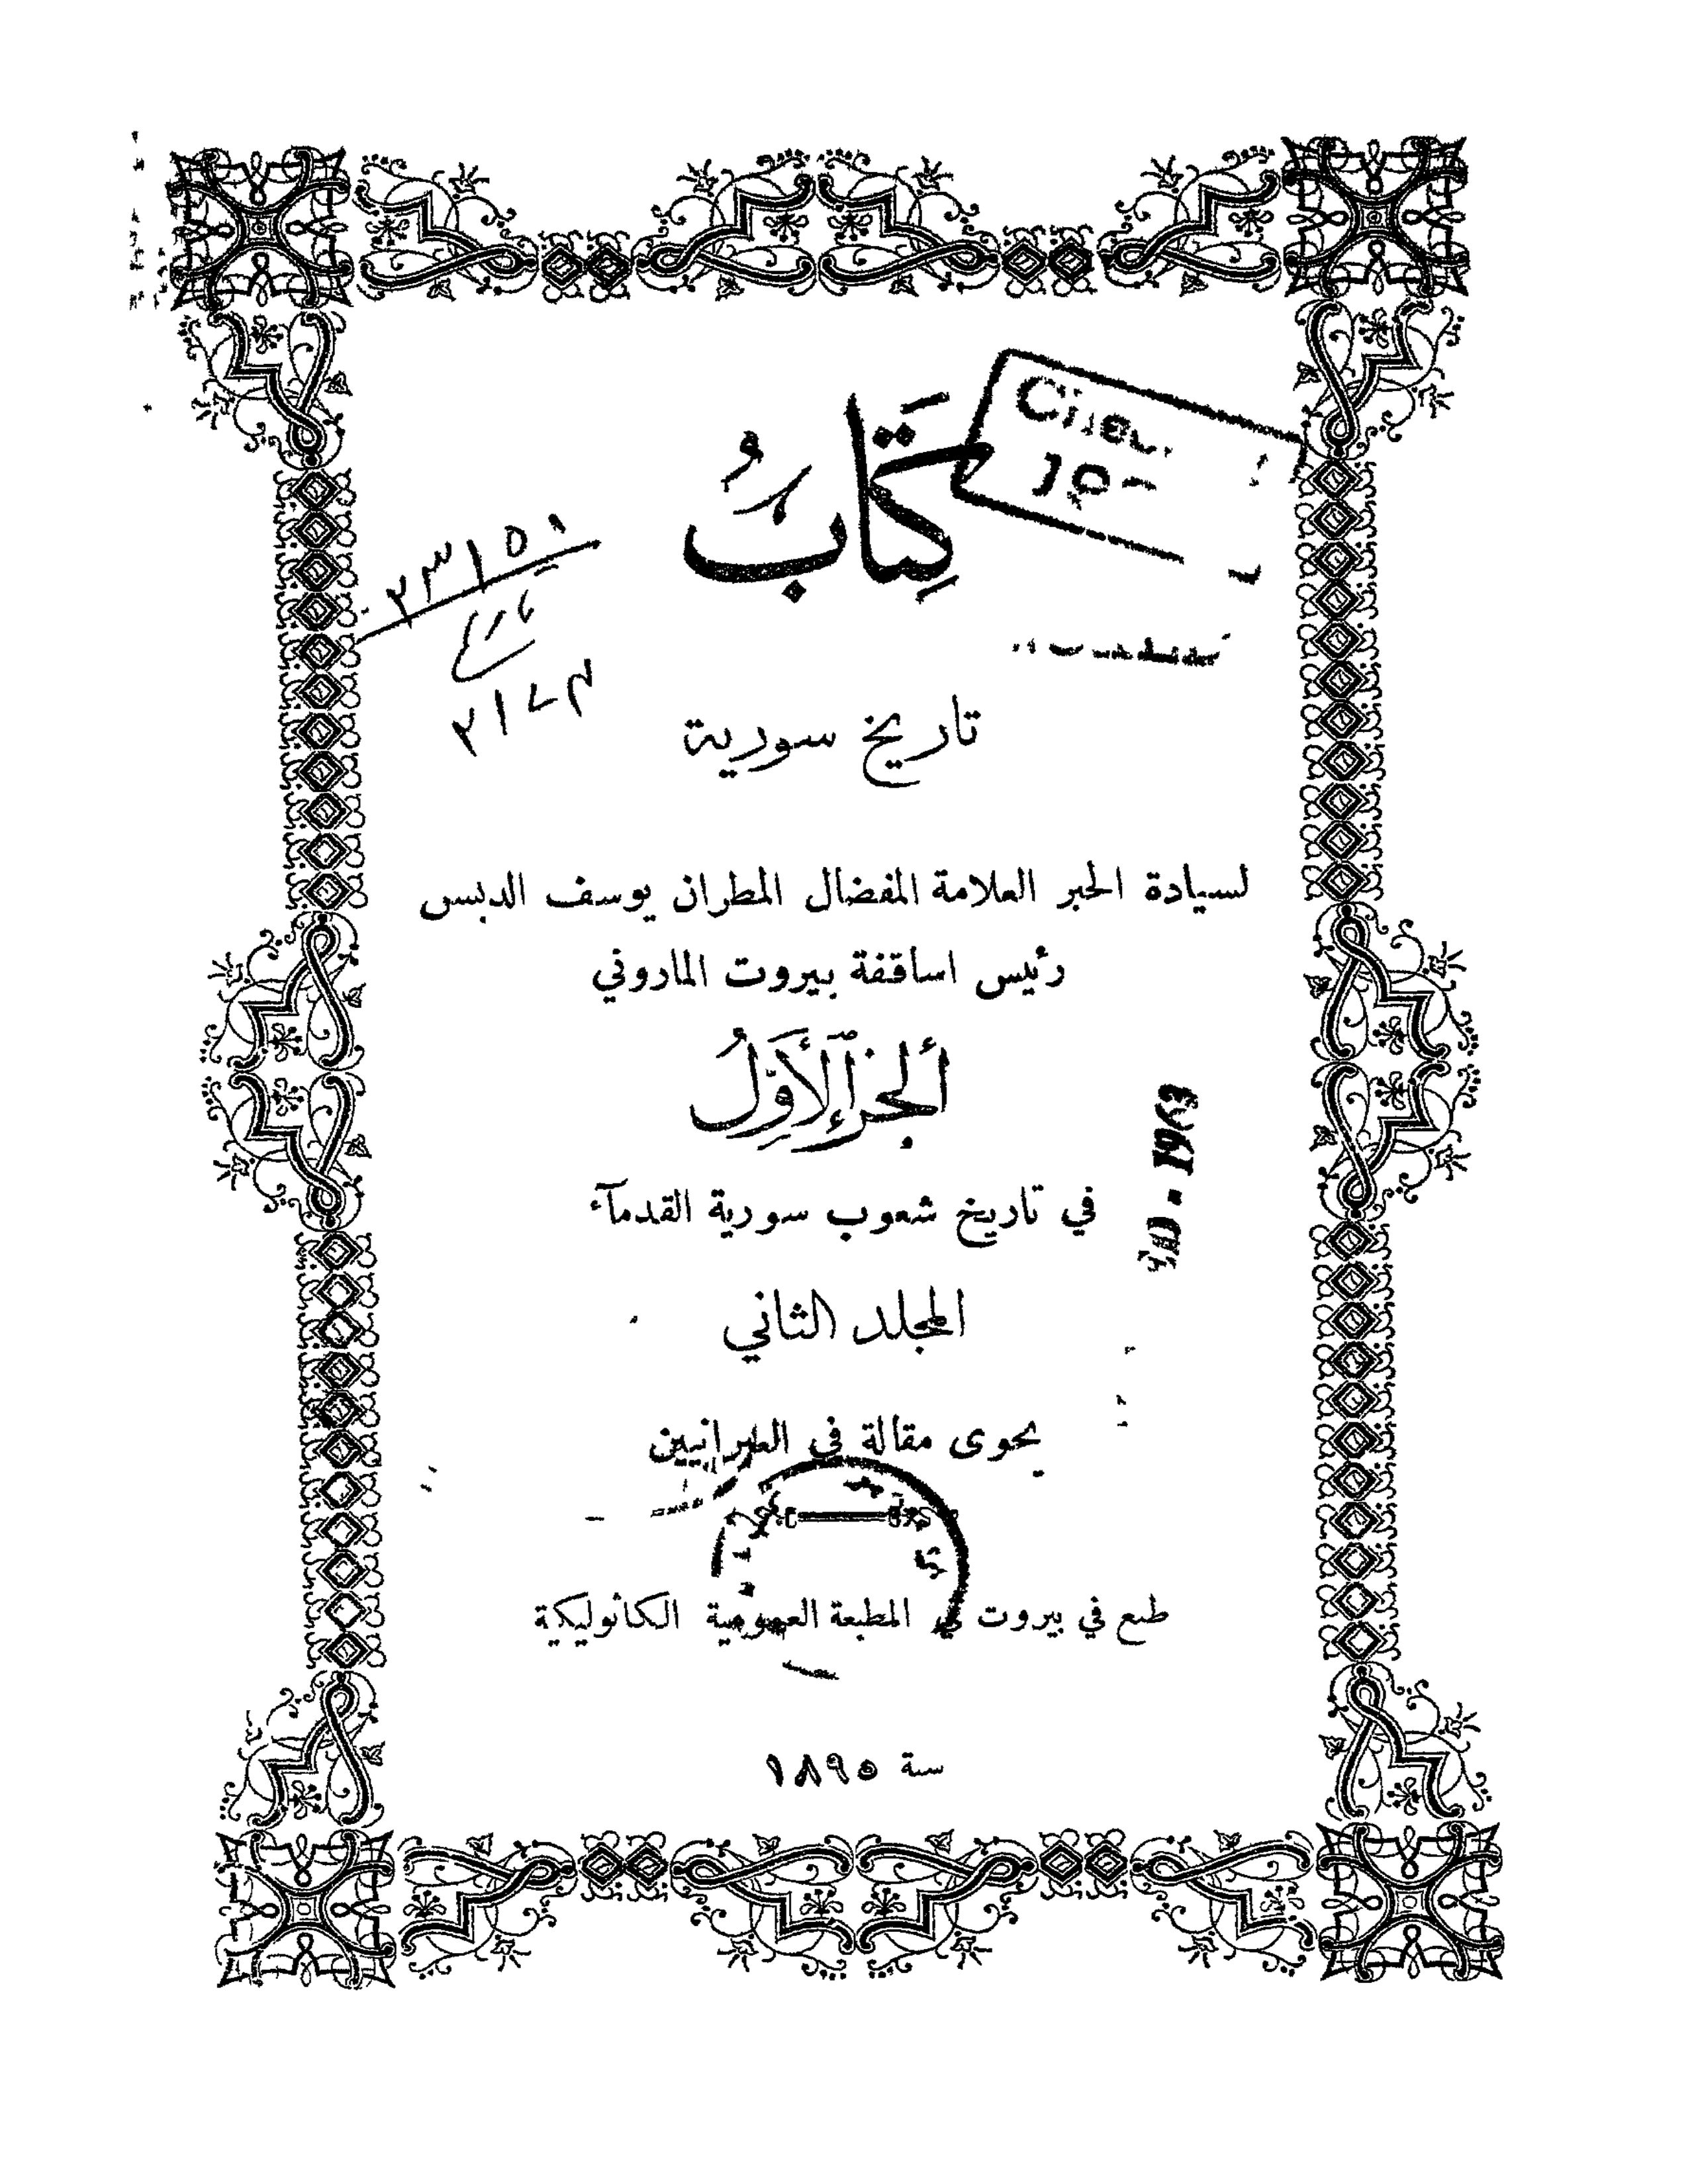 كِتَابٌ
٢٣١٥١
تاريخ
٢١٧٣
تاريخ سورية
لسيادة الحبر العلامة المفضال المطران يوسف الدبس
رئيس اساقفة بيروت الماروني
أَلجزءُ ٱلأَوَّلُ
في تاريخ شعوب سورية القدمآء
المجلد الثاني
يحوى مقالة في العبرانيين
طبع في بيروت في المطبعة العمومية الكاثوليكية
سنة ١٨٩٥